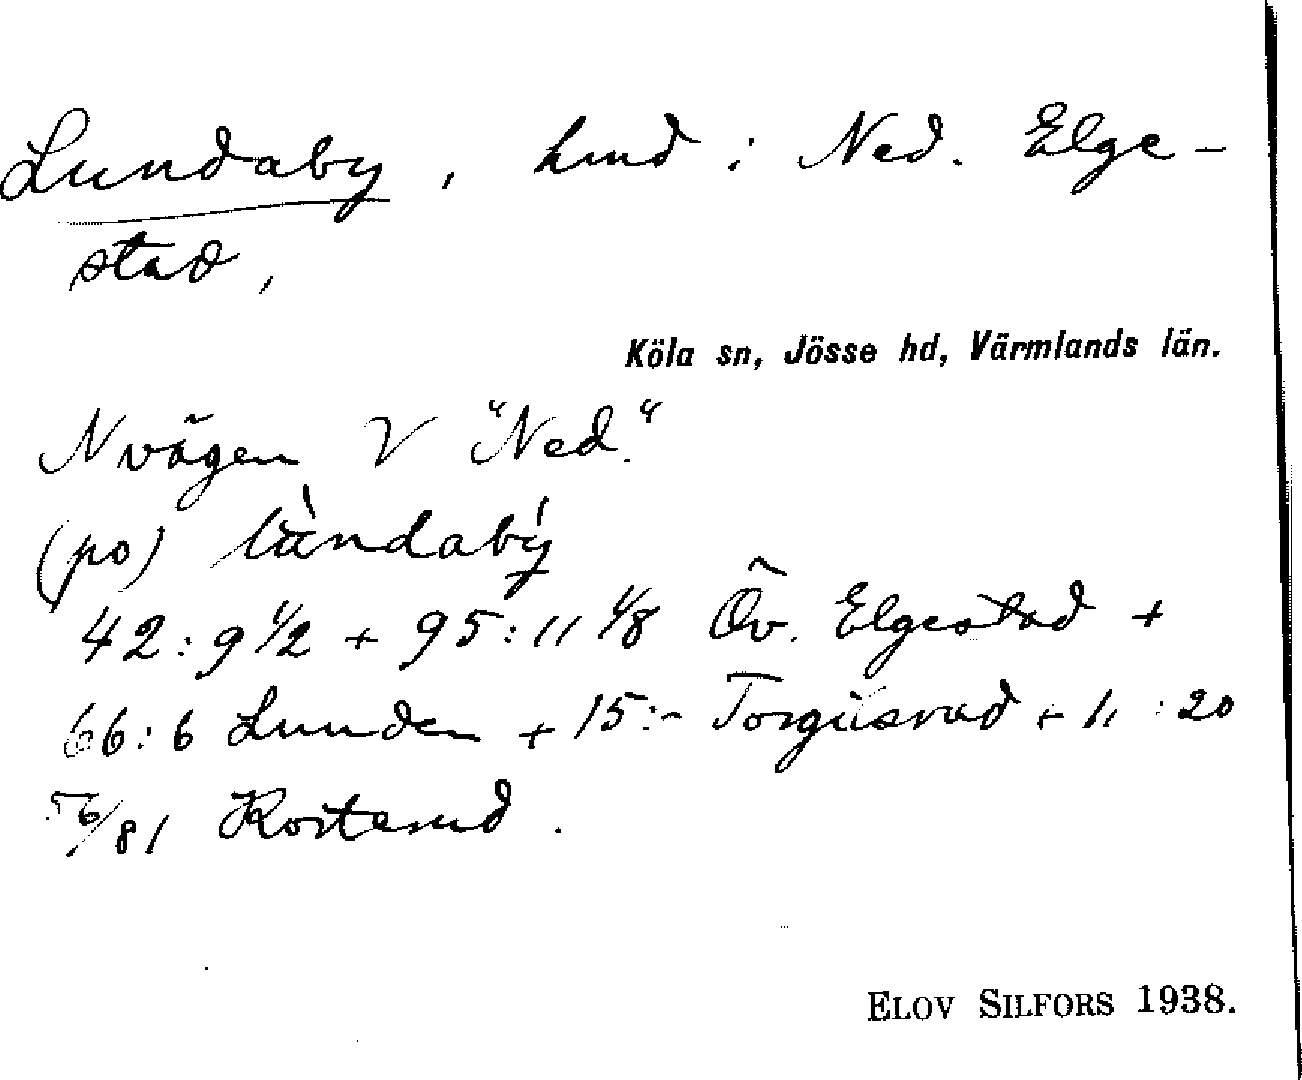 Lundaby, hmd i Ned. Elge-
stad,
Köla sn, Jösse hd, Värmlands län.
N vägen V "Ned."
(po) làndabý
42:9 1/2 + 95:11 1/8 Öv. Elgestad +
66:6 Lunden + 15:- Torgilsrud + 11:20
56/81 Rosterud.
ELOV SILFORS 1938.